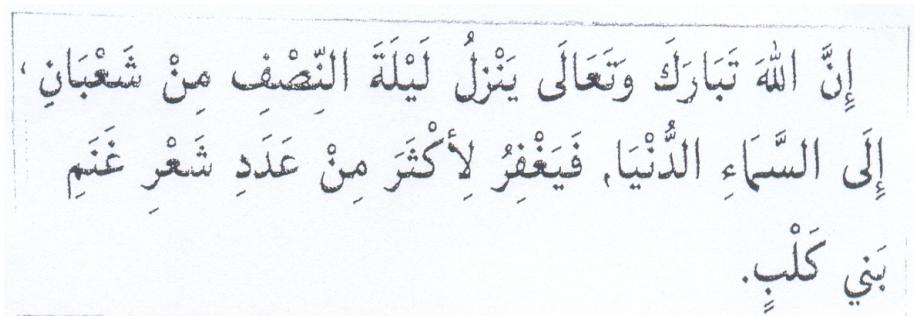 إِنَّ اللهَ تَبَارَكَ وَتَعَالَى يَنْزِلُ لَيْلَةَ النِّصْفِ مِنْ شَعْبَانِ،
إِلَى السَّمَاءِ الدُّنْيَا، فَيَغْفِرُ لِأَكْثَرَ مِنْ عَدَدِ شَعْرِ غَنَمِ
بَنِي كَلْبٍ.